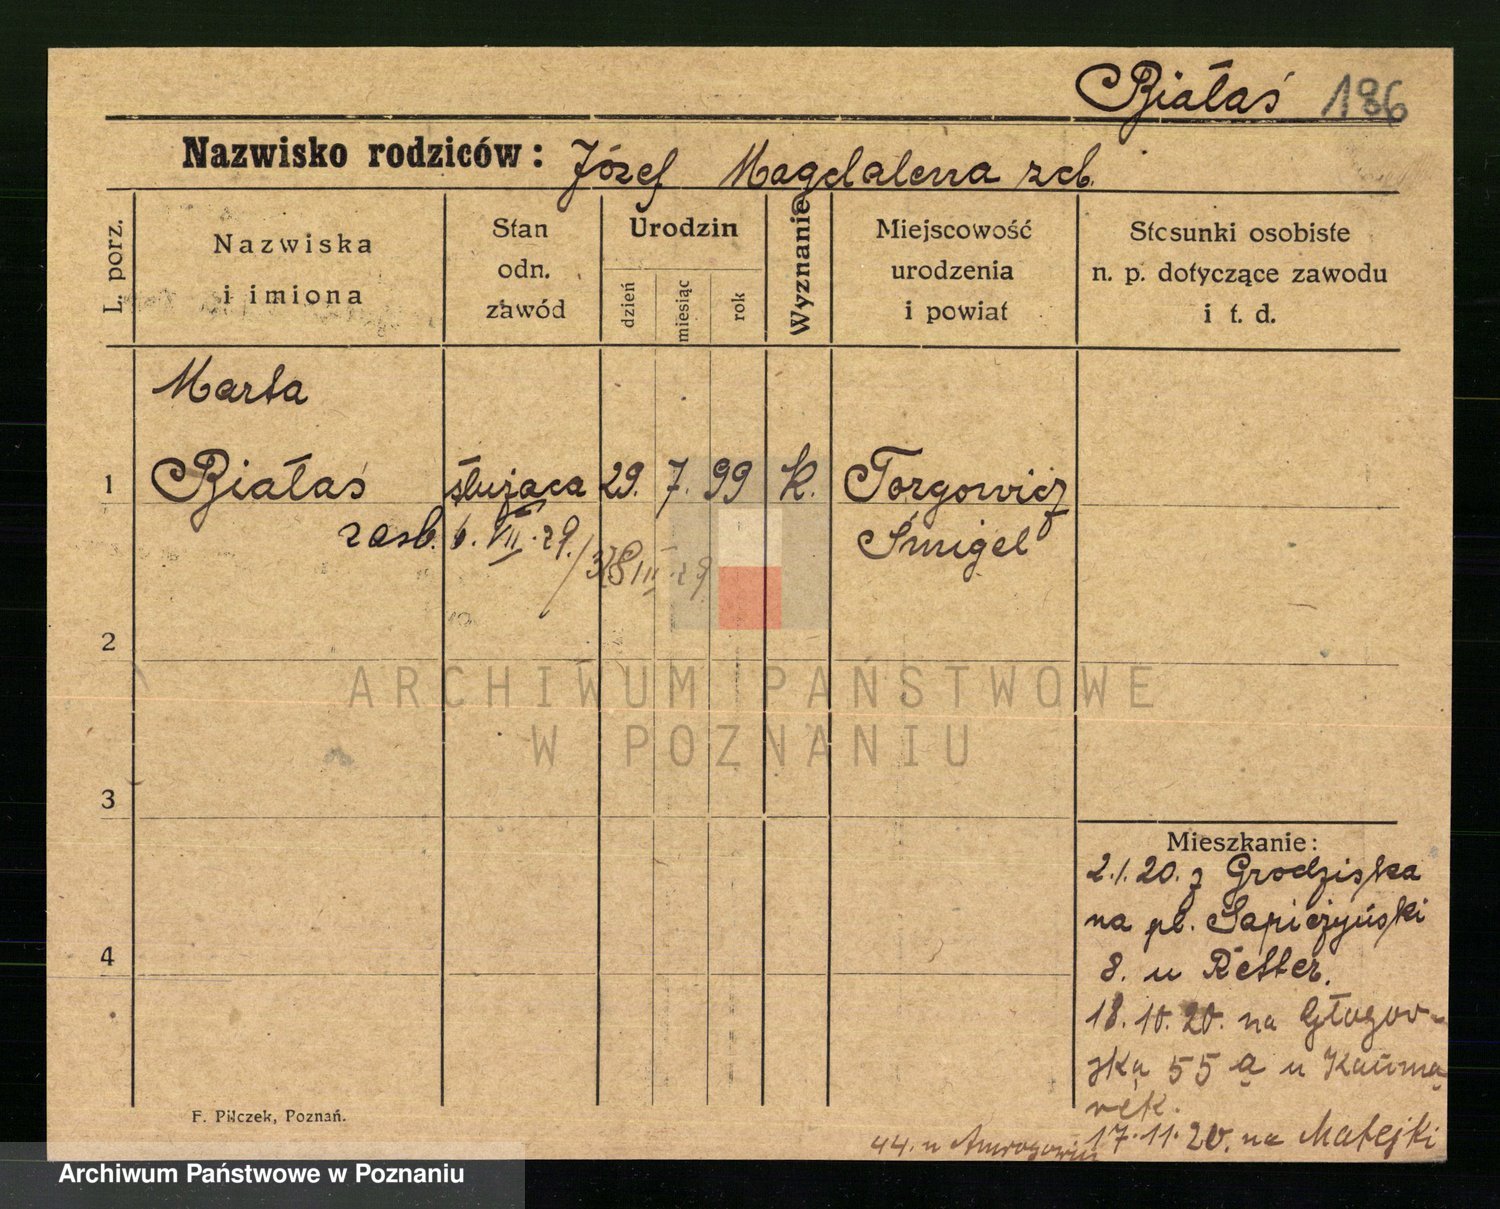 Białaś 186
Nazwisko rodziców: Józef Magdalena
L. porz.
Nazwiska i imiona
Stan odn. zawód
Urodzin
dzień
miesiąc
rok
Wyznanie
Miejscowość urodzenia i powiat
Stosunki osobiste n. p. dotyczące zawodu i t. d.
Marta
1 Białaś służąca 29. 7. 99 k. Torgowicz
zaśb. 6. VII. 29. Śmigel
2
ARCHIWUM PAŃSTWOWE
W POZNANIU
3
Mieszkanie:
2.1.20. z Grodziska
na pl. Sapieżyński
4
8. u Retter.
18.10.20. na Głogow-
ską 55 a u
17.11.20. na Matejki
44. u
F. Pilczek, Poznań.
Archiwum Państwowe w Poznaniu